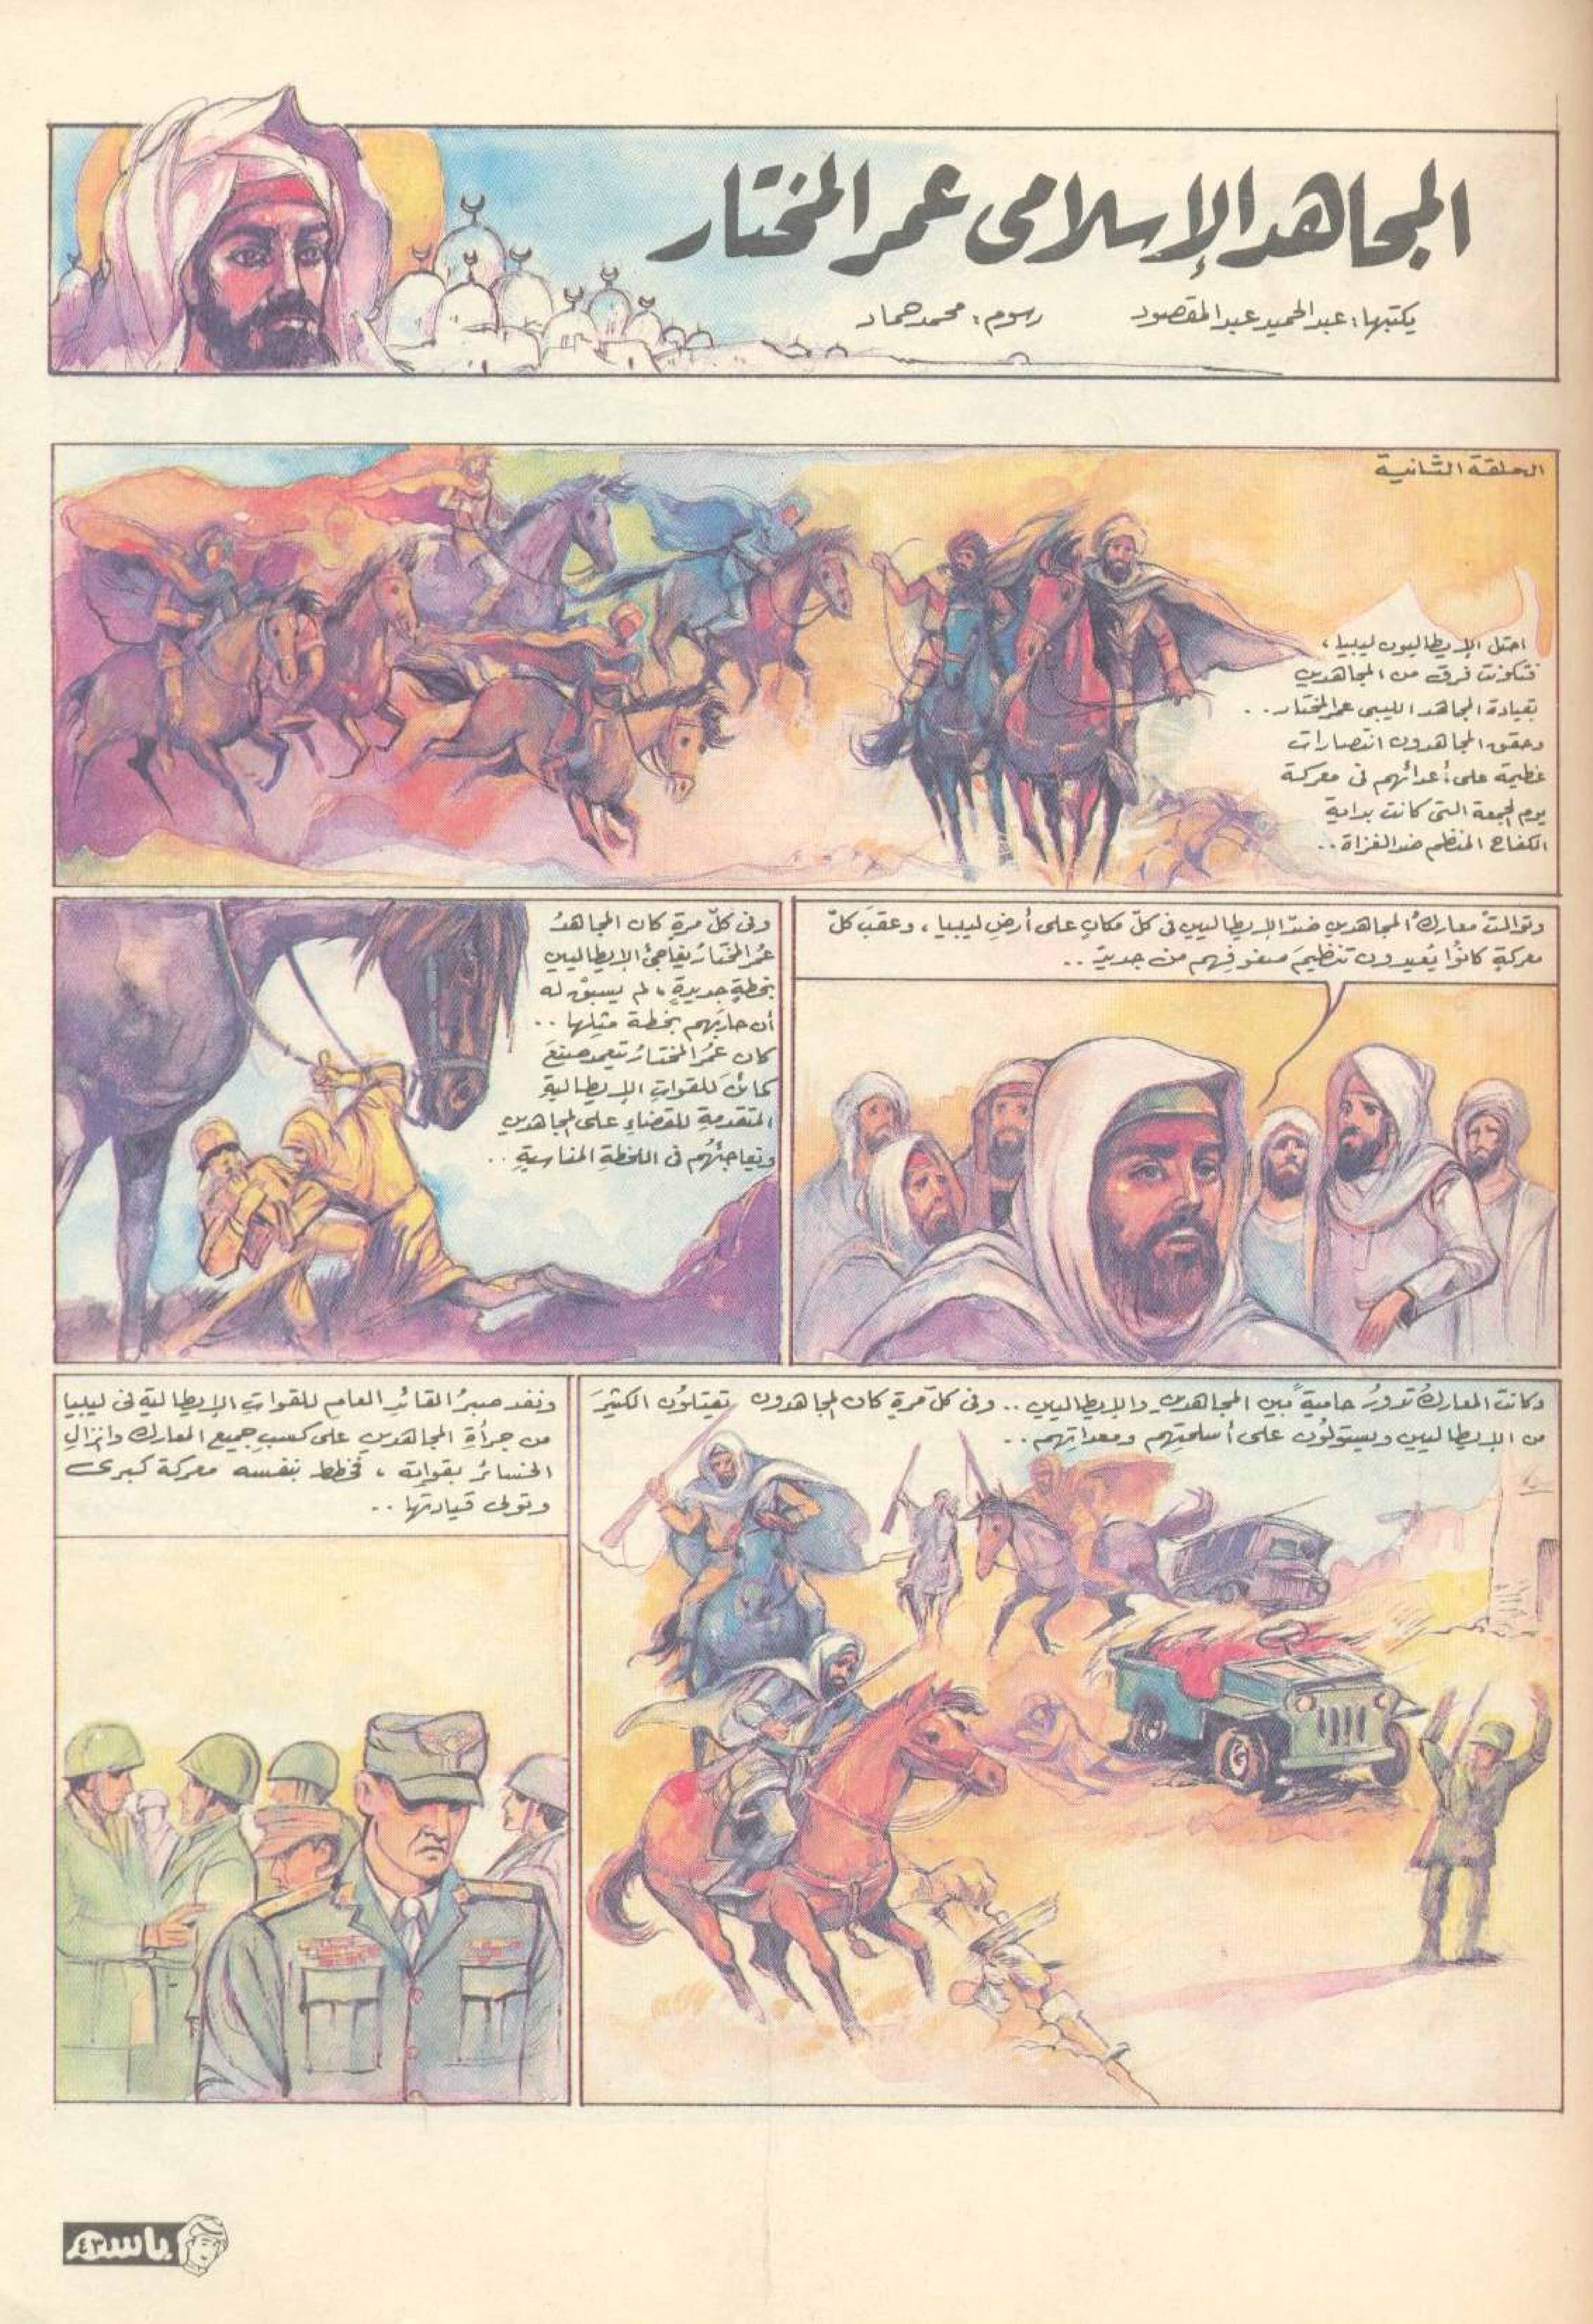 المجاهد الإسلامى عمر المختار
يكتبها: عبد الحميد عبد المقصود
رسوم: محمد حماد
الحلقة الثانية
احتل الإيطاليون ليبيا،
فتكونت فرق من المجاهدين
بقيادة المجاهد الليبى عمر المختار..
وحقق المجاهدون انتصارات
عظيمة على أعدائهم فى معركة
يوم الجمعة التى كانت بداية
الكفاح المنظم ضد الغزاة..
وتوالتْ معاركُ المجاهدين ضدّ الإيطاليين فى كلّ مكانٍ على أرضِ ليبيا، وعقبَ كلّ
معركةٍ كانُوا يُعيدون تنظيمَ صفوفِهم من جديدٍ..
وفى كلّ مرةٍ كان المجاهدُ
عُمر المختارُ يفاجئُ الإيطاليين
بخطةٍ جديدةٍ، لم يسبقْ له
أن حاربَهم بخطة مثلِها..
كان عُمرُ المختارُ يتعمد صنعَ
كمائنَ للقواتِ الإيطاليةِ
المتقدمةِ للقضاءِ على المجاهدين
ويفاجئُهم فى اللحظةِ المناسبةِ..
وكانت المعاركُ تدورُ حاميةً بين المجاهدين والإيطاليين.. وفى كلّ مرةٍ كان المجاهدون يقتلُون الكثيرَ
من الإيطاليين ويستولُون على أسلحتِهم ومعداتِهم..
ونفد صبرُ القائدِ العامِ للقواتِ الإيطاليةِ فى ليبيا
من جرأةِ المجاهدين على كسبِ جميع المعارك وانزالِ
الخسائرِ بقواتِه، فخطط بنفسه معركة كبرى
وتولى قيادتها..
باسم
٤٣